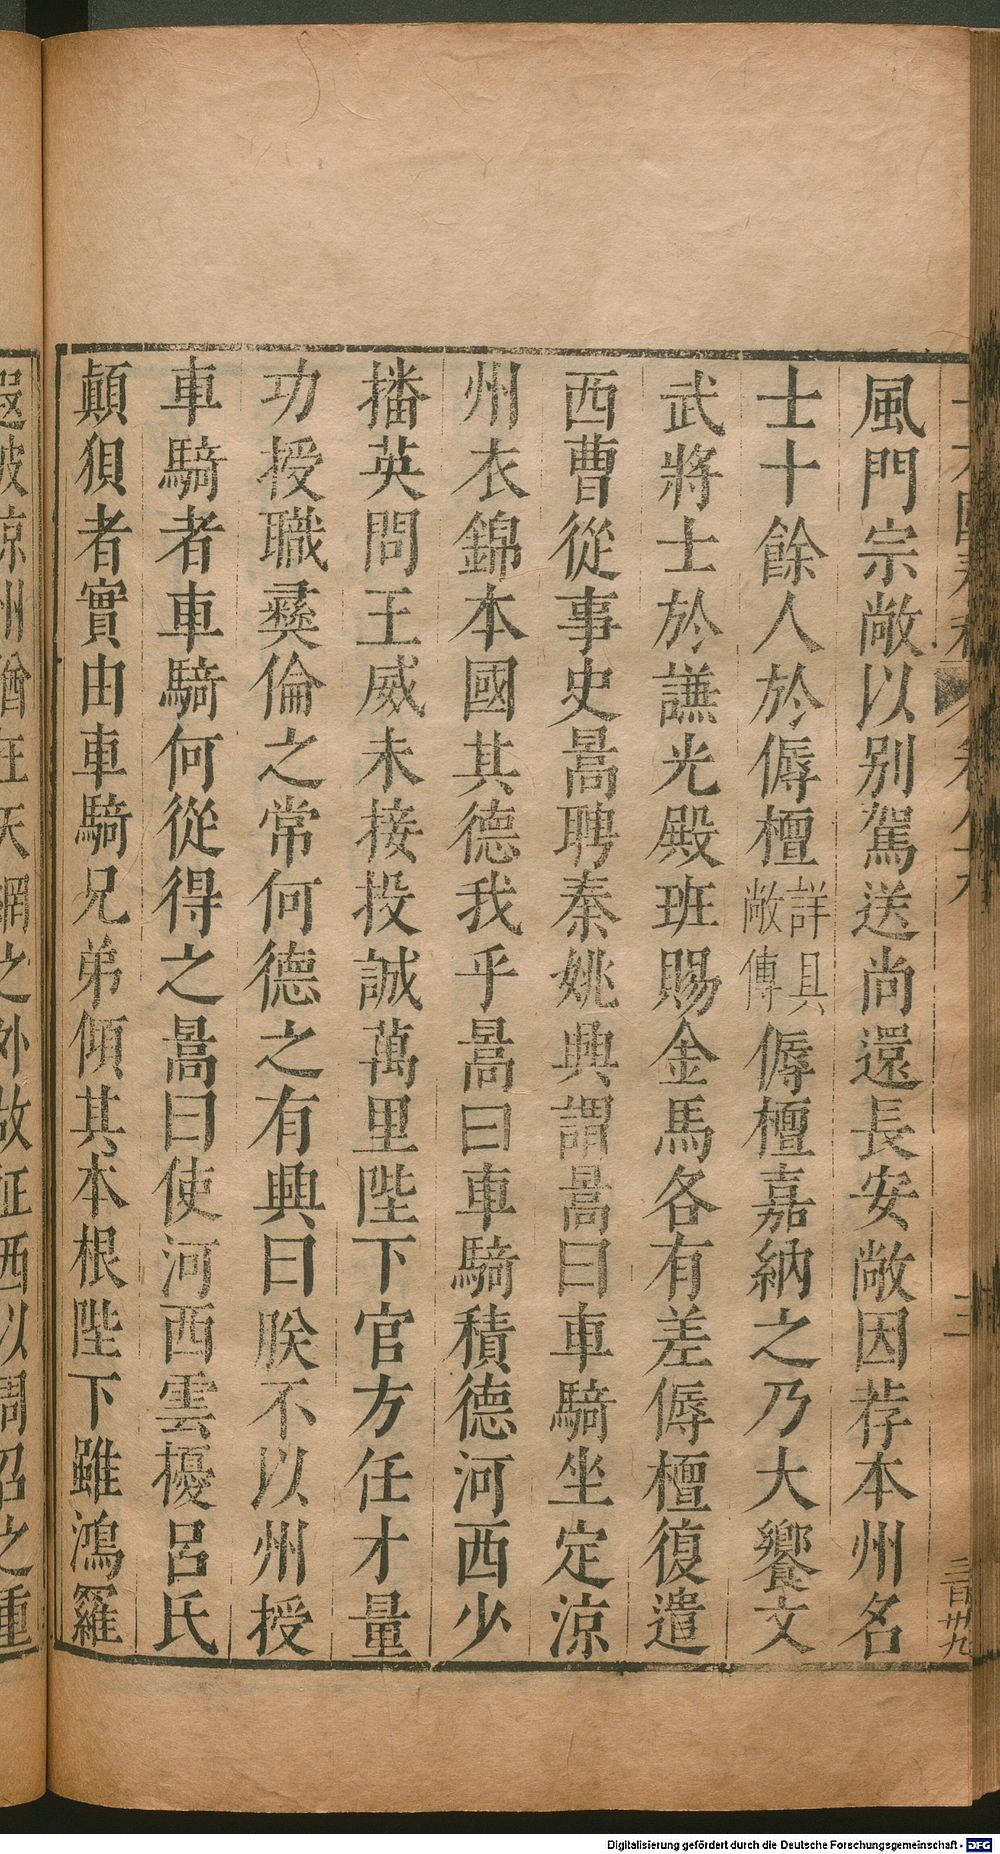 風門宗敞以別駕送尚還長安敞因荐本州名
士十餘人於傉檀詳具敞傳傉檀嘉納之乃大饗文
武將士於謙光殿班賜金馬各有差傉檀復遣
西曹從事史暠聘秦姚興謂暠曰車騎坐定涼
州衣錦本國其德我乎暠曰車騎積德河西少
播英問王威未接投誠萬里陛下官方任才量
功授職彞倫之常何德之有興曰朕不以州授
車騎者車騎何從得之暠曰使河西雲擾呂氏
顛狽者實由車騎兄弟傾其本根陛下雖鴻羅
遐被涼州猶在天網之外故征西以周召之重
三百卅九
Digitalisierung gefördert durch die Deutsche Forschungsgemeinschaft - DFG